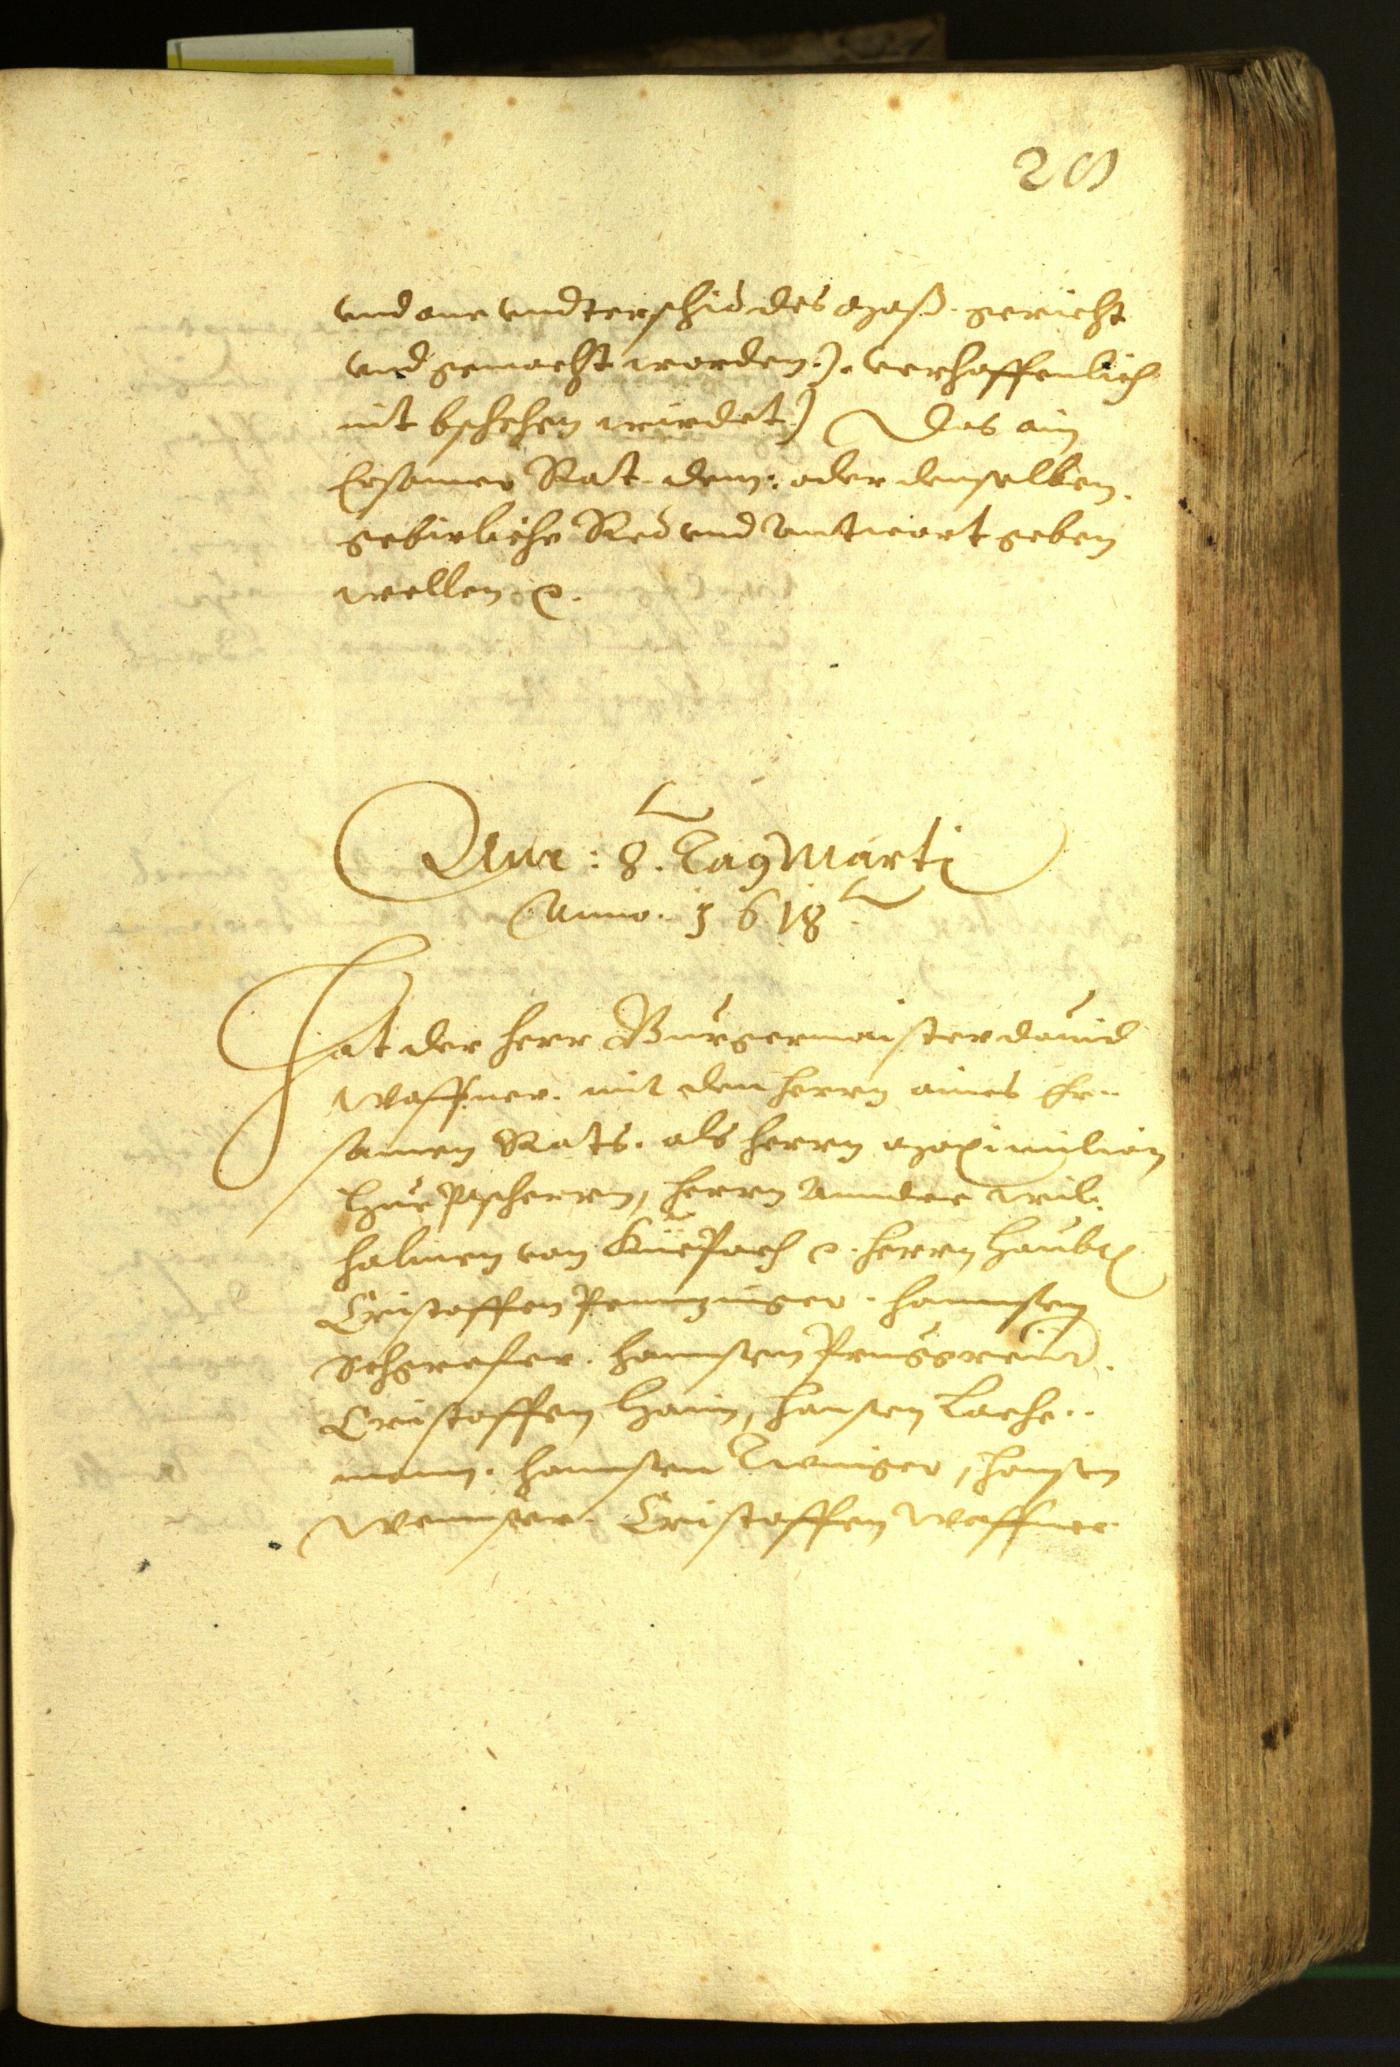 und one undterschid des maß gericht
und gemacht worden.) verhoffenlich
nit bschehen wirdet) Das ain
Ersamer Rat dem: oder denselben
gebirliche Red und Antwort geben
wellen
Am: 8. Tag Marti
Anno. 1618
Hat der herr Burgermaister david
Waffner. mit den herrn aines Er-
samen Rats. als herrn Maximilian
herrn Anndree Wil-
halmen von Küepach herrn Haubt
Cristoffen Penninger. Hannsen
Schgrafer. Hannsen Pruggreind.
Cristoffen Hain, Hansen Lach-
mann. Hannsen Tröniger, Hansen
Wennser. Cristoffen Waffner